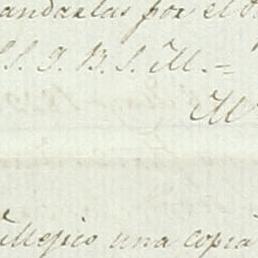 andarlas por el
S. S. Q. B. S. M. =
M
Mejico una copia